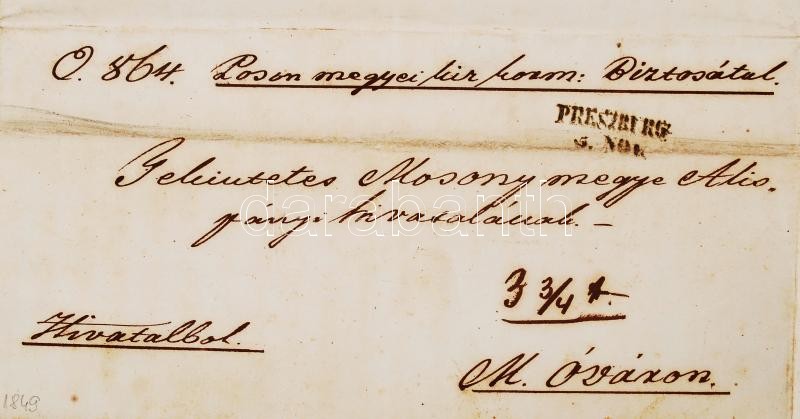 O. 864. Poson megyei kir korm: Biztosátul.
PRESZBURG
5. NOV.
Tekintetes Mosony megye Alis-
pányi hivatalának. –
darabanth
3 3/4 
Hivatalbol.
M. Óváron.
1849